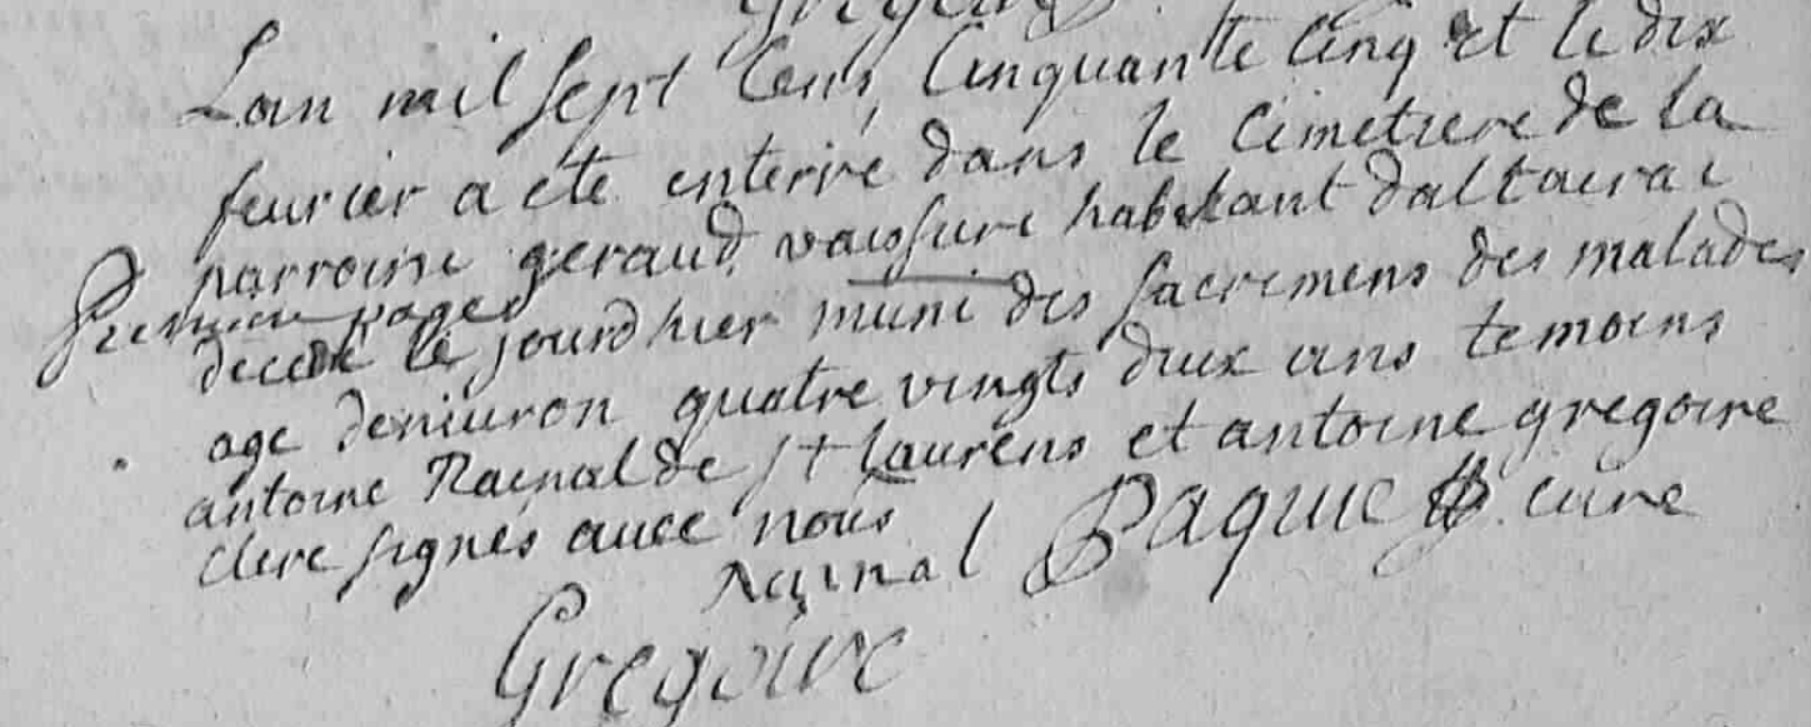 Lan mil sept Cens Cinquante Cinq et le dix
feurier a ete enterré dans le Cimetiere de la
parroisse geraud vaissiere habitant daltairac
Premiere page
decedé le jourd hier muni des sacremens des malades
age deniuron quatre vingts deux ans temoins
antoine Rainal de st Laurens et antoine gregoire
clerc signés auec nous
Rainal Paquie curé
Gregoire